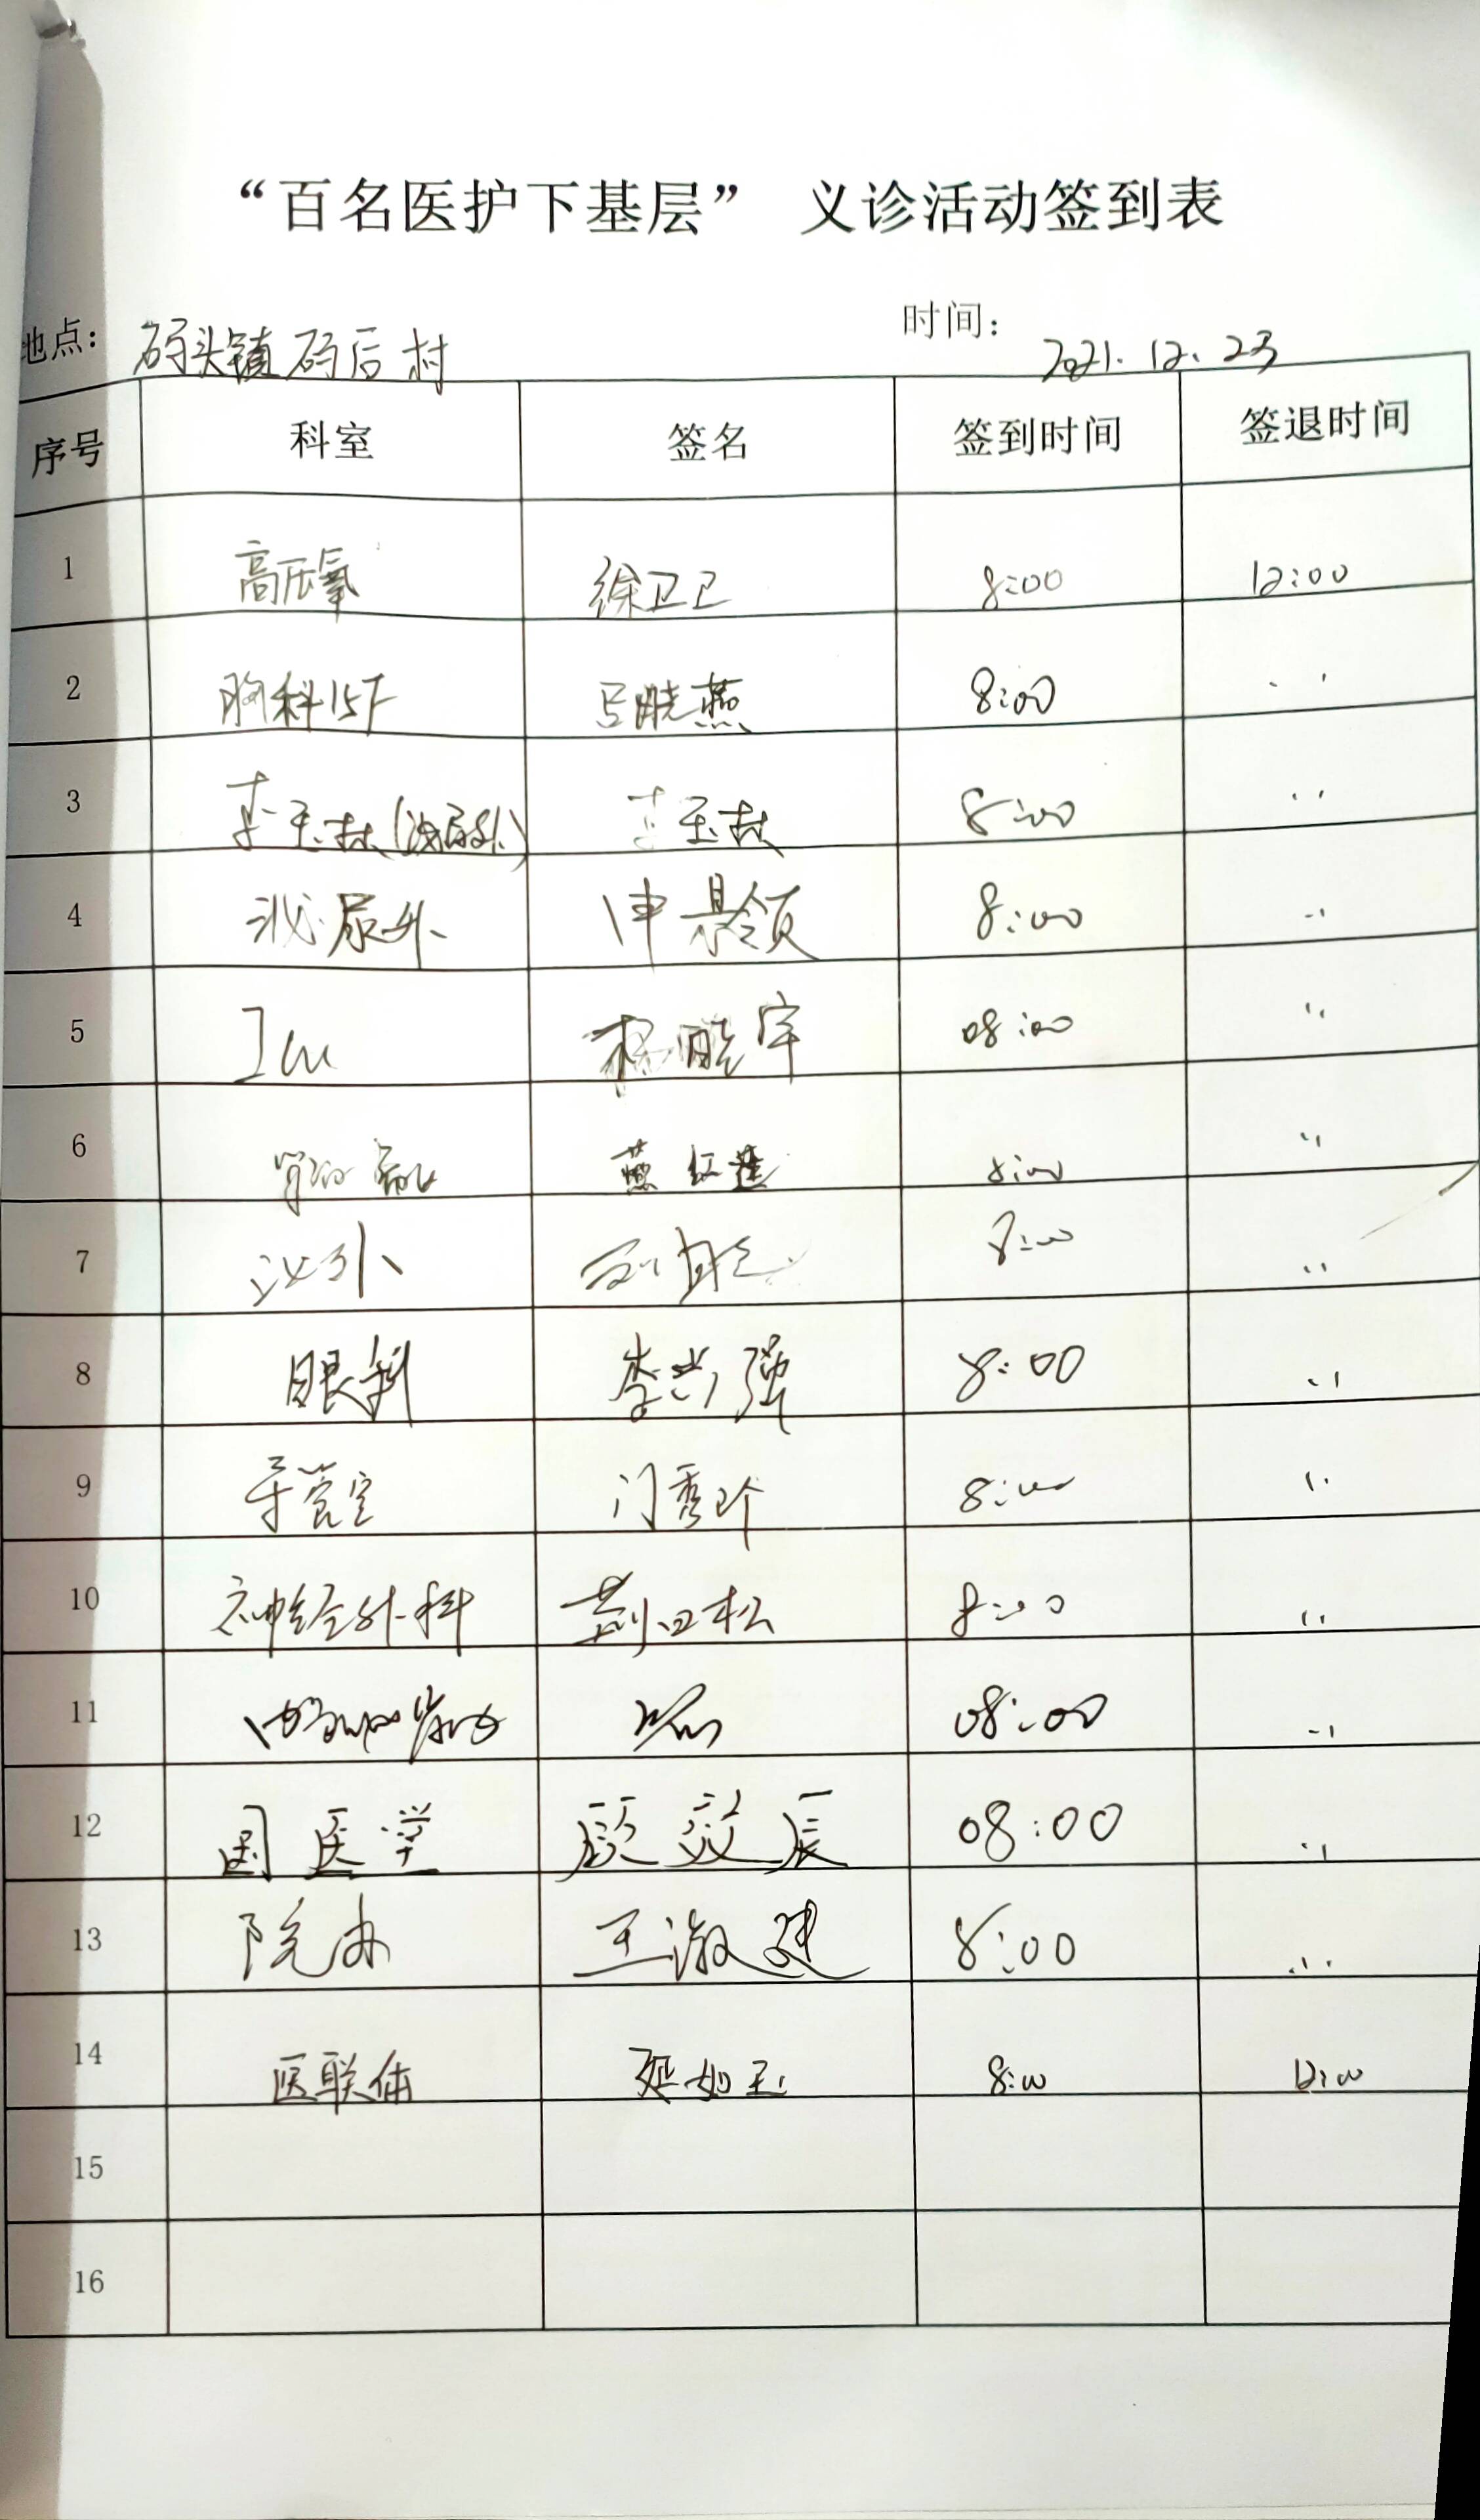 “百名医护下基层” 义诊活动签到表
地点: 码头镇码后村 时间: 2021.12.23
序号 科室 签名 签到时间 签退时间
1 高压氧 徐卫卫 8:00 12:00
2 胸科15F 吕晓燕 8:00 〃
3 李玉林(泌尿外) 李玉林 8:00 〃
4 泌尿外 申景领 8:00 〃
5 Icu 杨晓宇 08:00 〃
6 燕红莲 8:00 〃
7 泌外 8:00 〃
8 眼科 李兴强 8:00 〃
9 导管室 门秀玲 8:00 〃
10 神经外科 荆日松 8:00 〃
11 08:00 〃
12 国医堂 顾效辰 08:00 〃
13 院办 王淑建 8:00 〃
14 医联体 延如玉 8:00 12:00
15
16